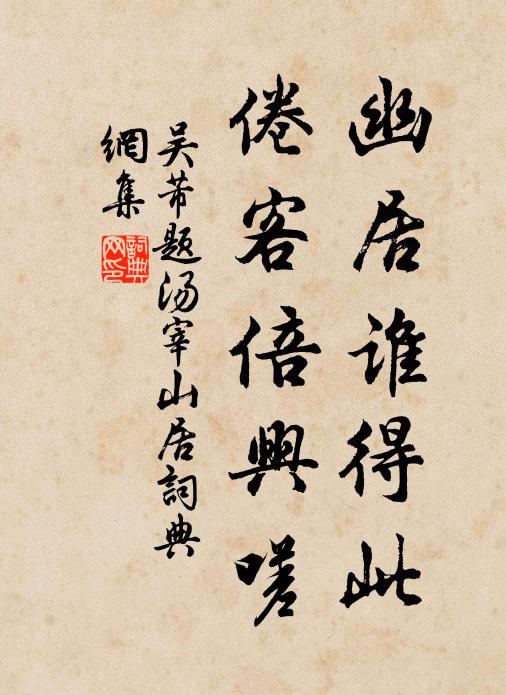 幽居谁得此
倦客倍興嗟
吴芾题汤宰山居詞典
網集
詞典
网印